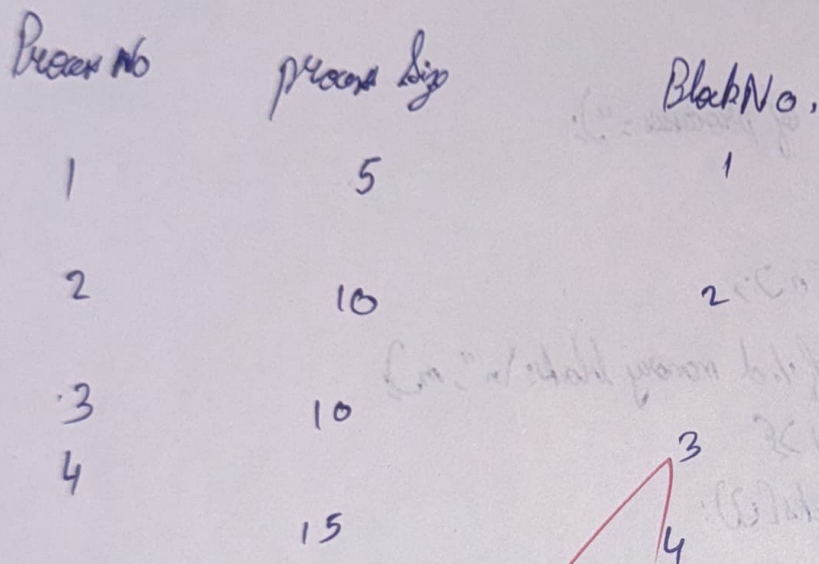 Process No process Size Block No.
1 5 1
2 10 2
3 10
3
4
15
4